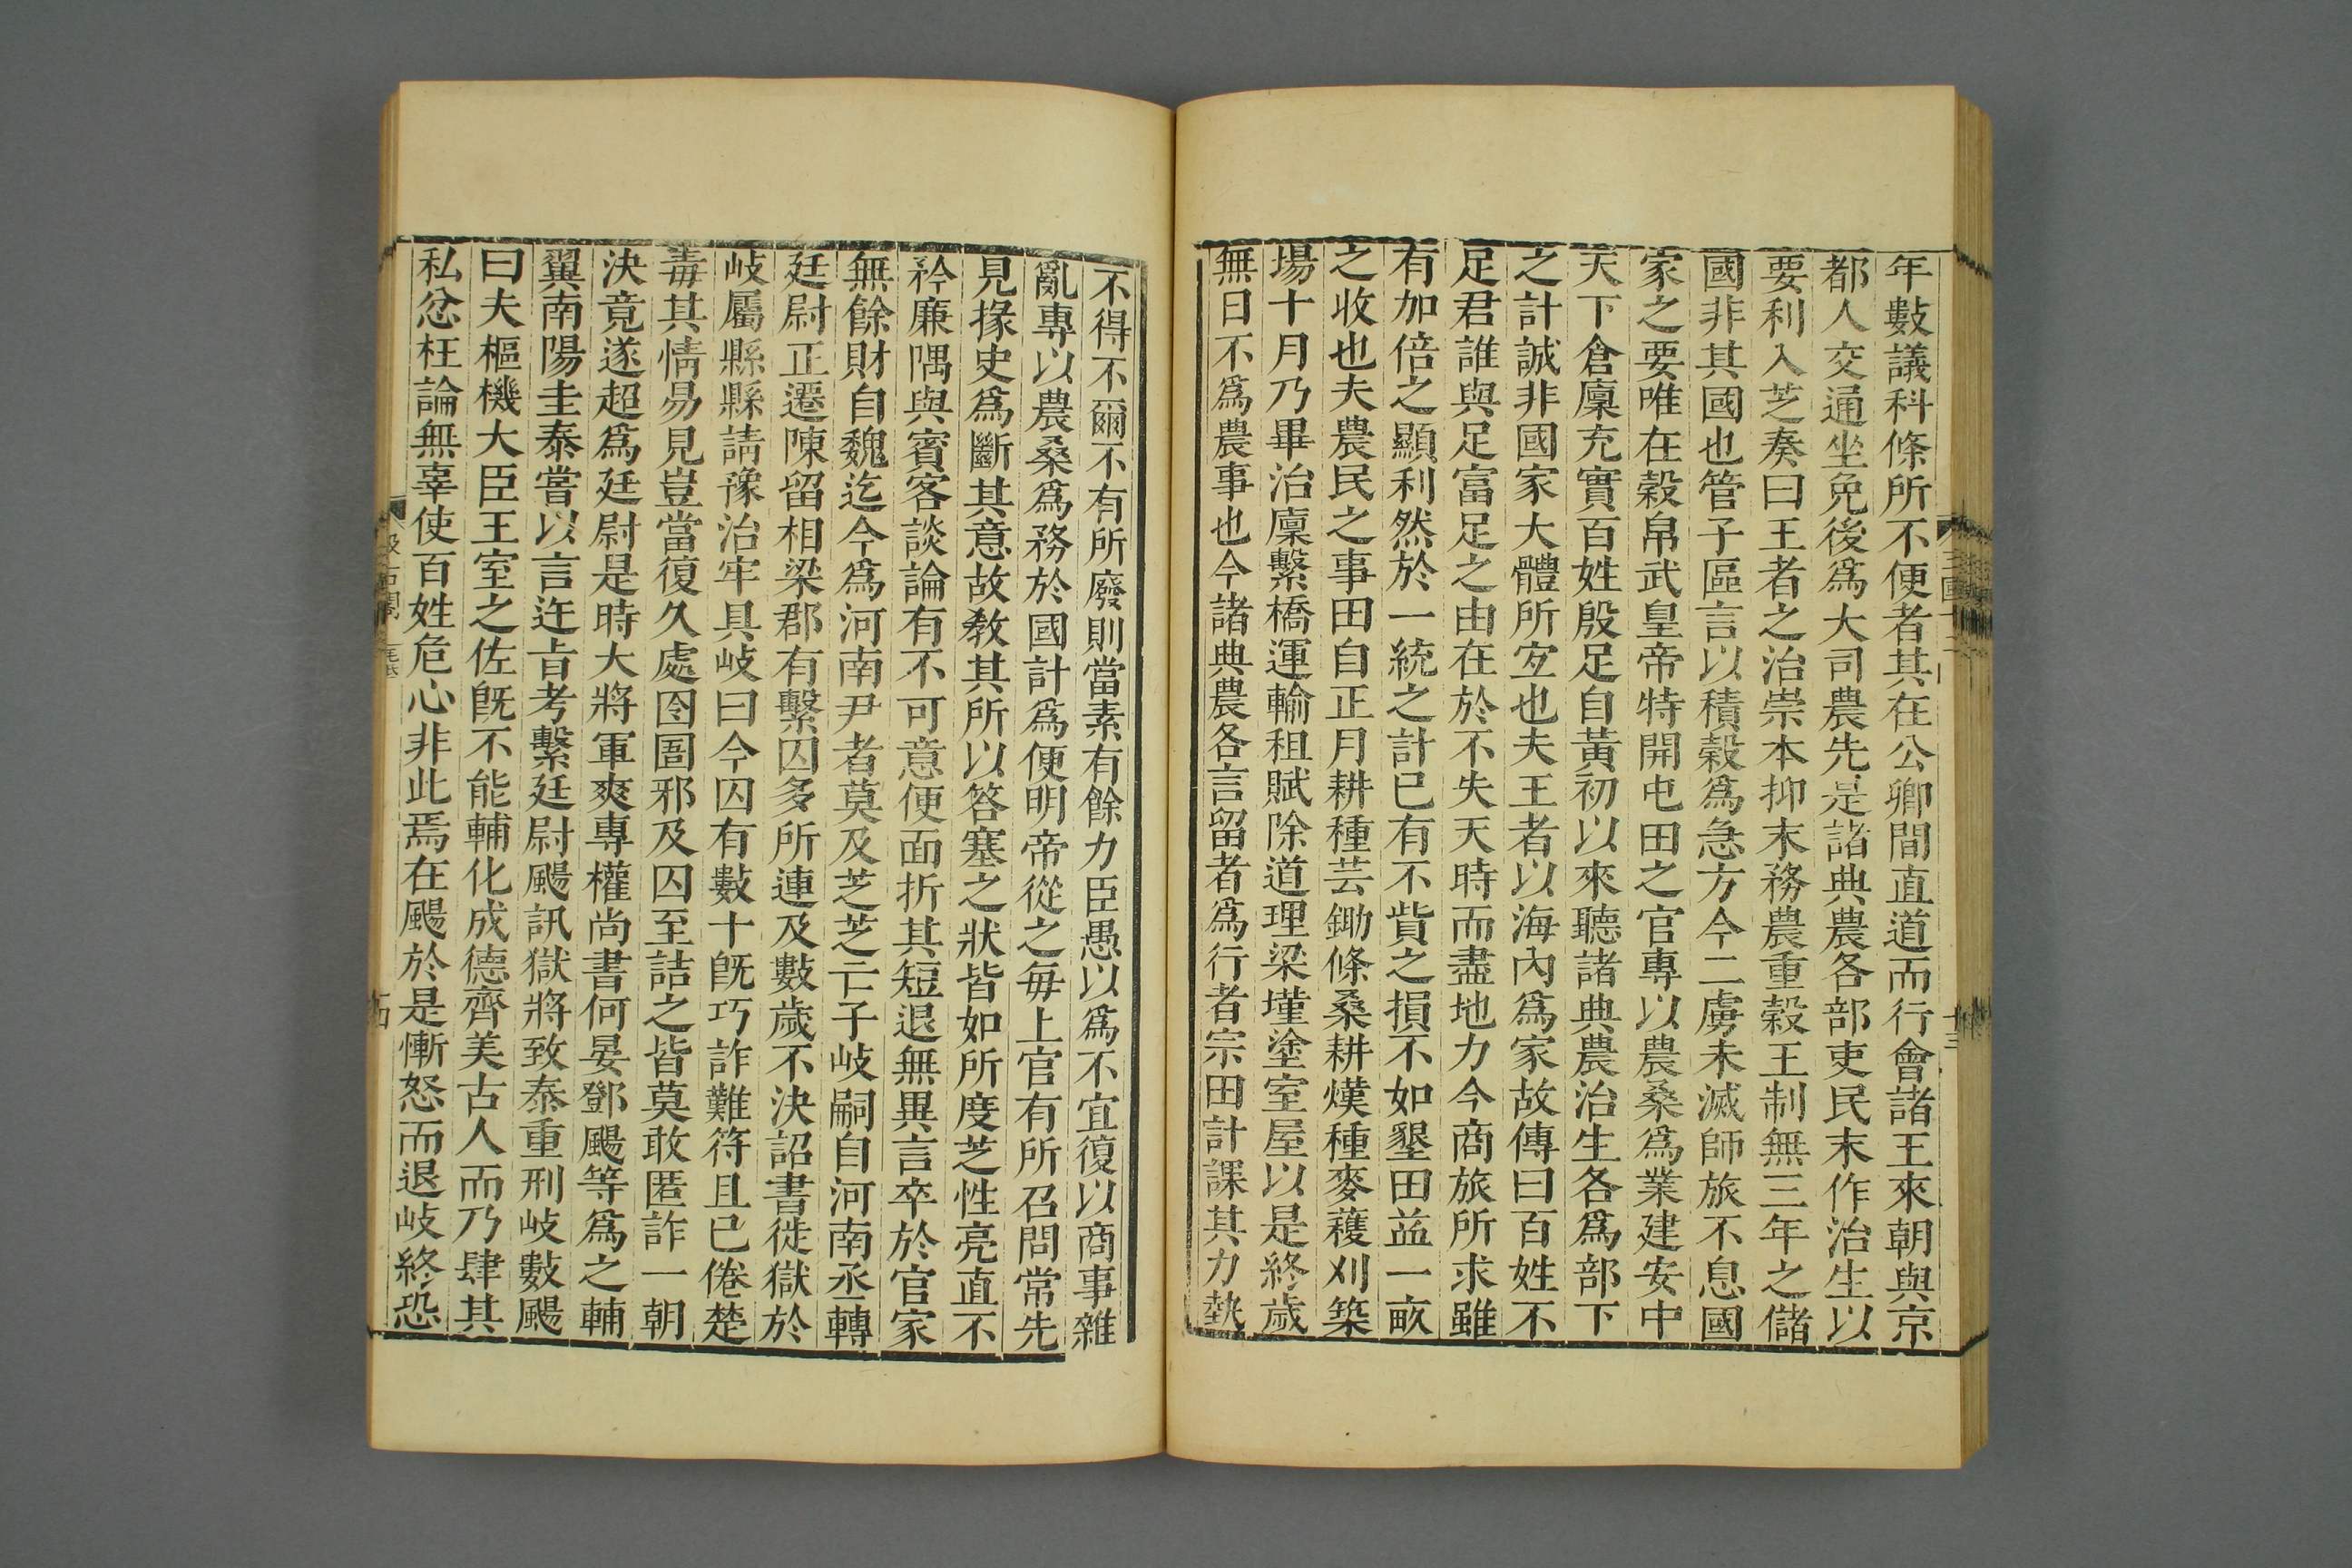 年數議科條所不便者其在公卿間直道而行會諸王來朝與京
都人交通坐免後爲大司農先是諸典農各部吏民末作治生以
要利入芝奏曰王者之治崇本抑末務農重穀王制無三年之儲
國非其國也管子區言以積穀爲急方今二虜未滅師旅不息國
家之要唯在穀帛武皇帝特開屯田之官專以農桑爲業建安中
天下倉廩充實百姓殷足自黃初以來聽諸典農治生各爲部下
之計誠非國家大體所宜也夫王者以海內爲家故傳曰百姓不
足君誰與足富足之由在於不失天時而盡地力今商旅所求雖
有加倍之顯利然於一統之計已有不貲之損不如墾田益一畝
之收也夫農民之事田自正月耕種芸鋤條桑耕熯種麥穫刈築
場十月乃畢治廩繫橋運輸租賦除道理梁墐塗室屋以是終歲
無日不爲農事也今諸典農各言留者爲行者宗田計課其力埶
不得不爾不有所廢則當素有餘力臣愚以爲不宜復以商事雜
亂專以農桑爲務於國計爲便明帝從之每上官有所召問常先
見掾史爲斷其意故敎其所以答塞之狀皆如所度芝性亮直不
矜廉隅與賓客談論有不可意便面折其短退無異言卒於官家
無餘財自魏迄今爲河南尹者莫及芝芝亡子岐嗣自河南丞轉
廷尉正遷陳留相梁郡有繫囚多所連及數歲不決詔書徙獄於
岐屬縣縣請豫治牢具岐曰今囚有數十旣巧詐難符且已倦楚
毒其情易見豈當復久處囹圄邪及囚至詰之皆莫敢匿詐一朝
決竟遂超爲廷尉是時大將軍爽專權尚書何晏鄧颺等爲之輔
翼南陽圭泰嘗以言迕旨考繫廷尉颺訊獄將致泰重刑岐數颺
曰夫樞機大臣王室之佐旣不能輔化成德齊美古人而乃肆其
私忿枉論無辜使百姓危心非此焉在颺於是慚怒而退岐終恐